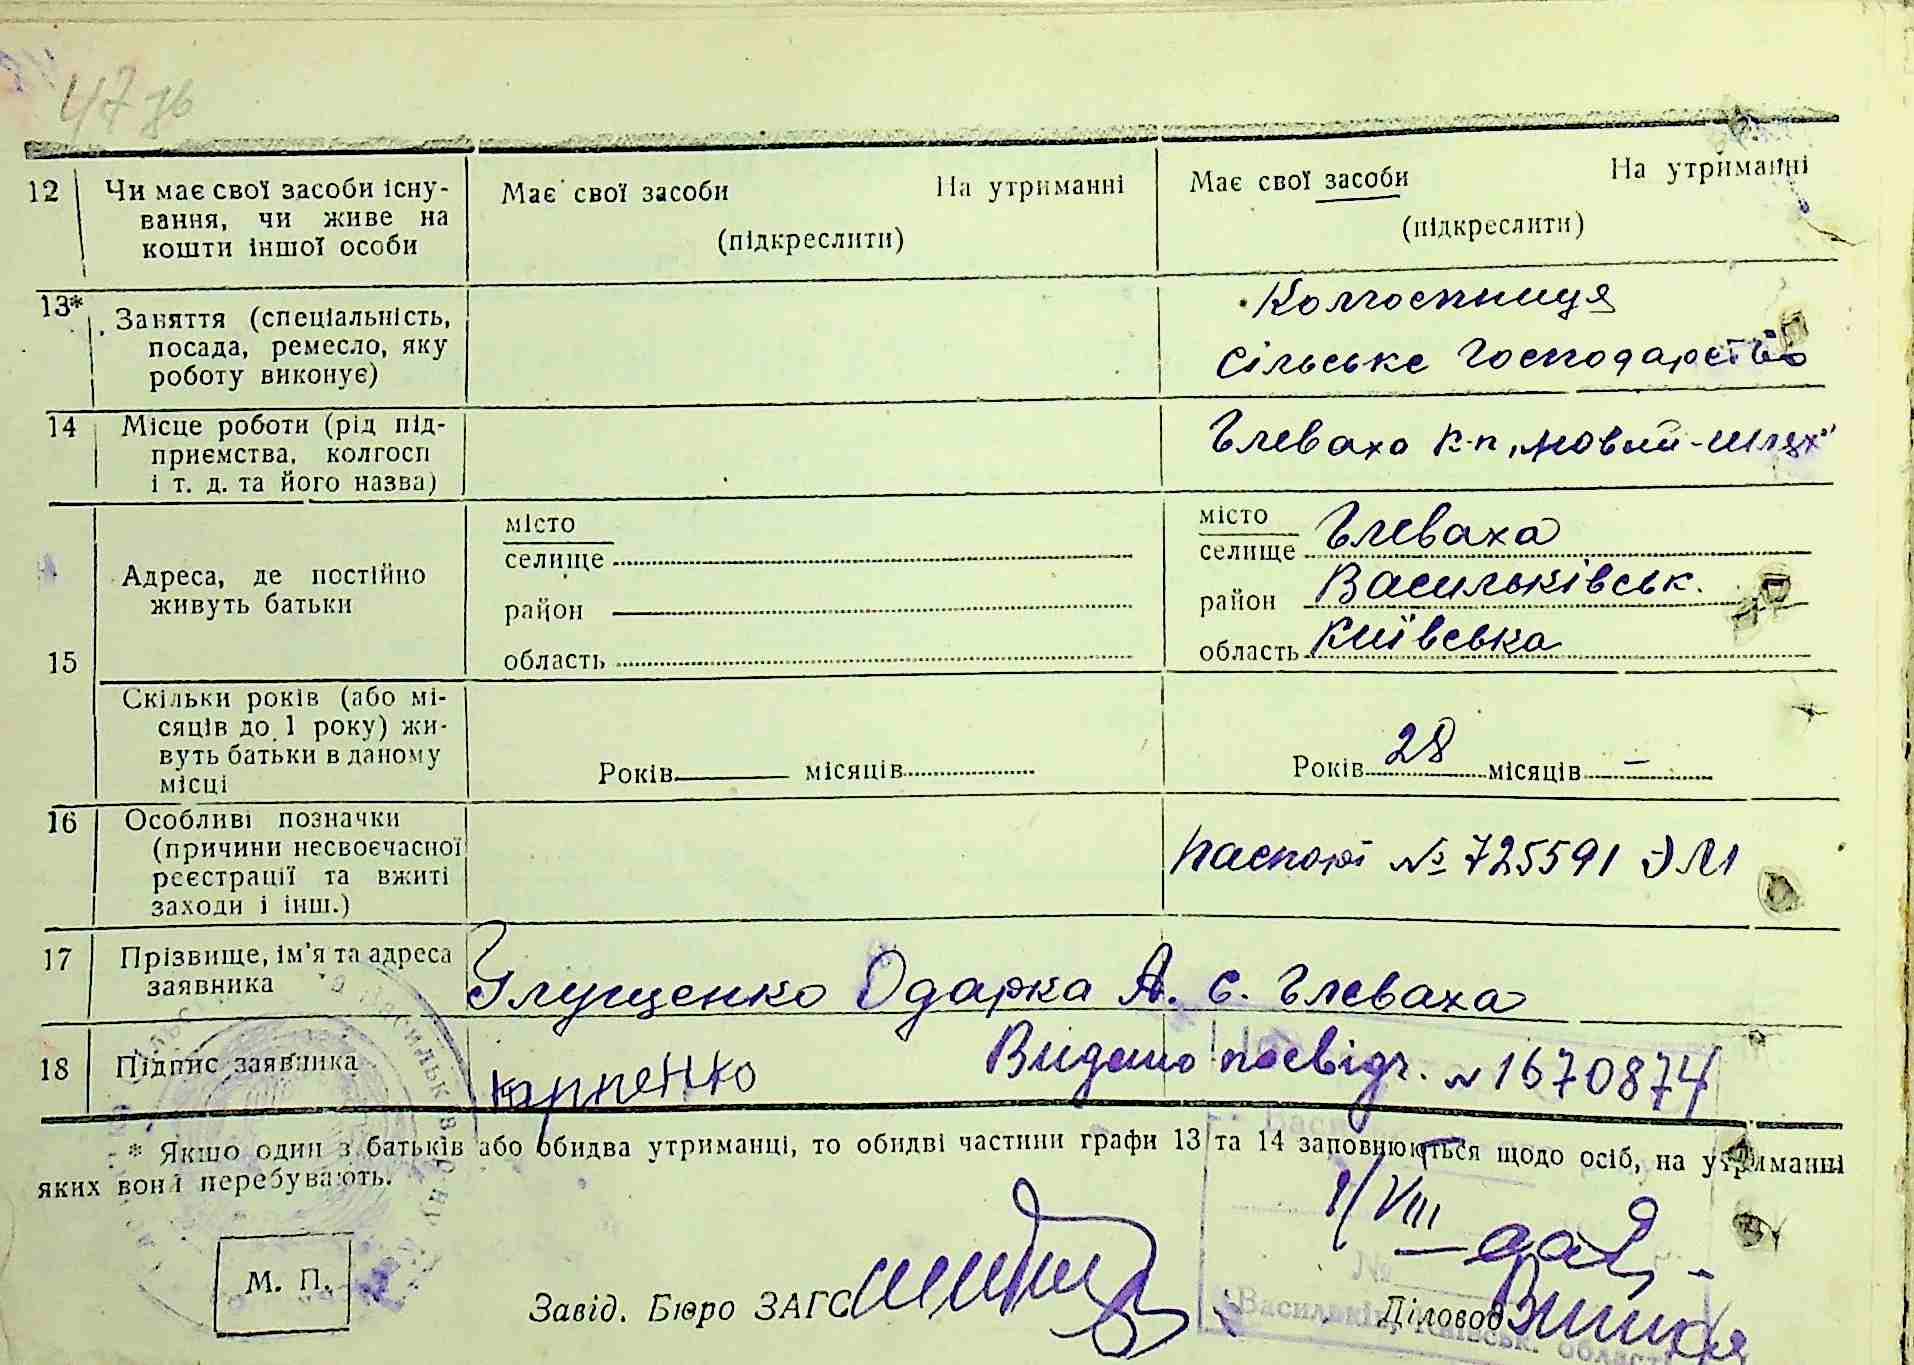 47 зв
12 Чи має свої засоби існу-
вання, чи живе на
кошти іншої особи
Має свої засоби На утриманні
(підкреслити)
Має свої засоби На утриманні
(підкреслити)
13* Заняття (спеціальність,
посада, ремесло, яку
роботу виконує)
Колгоспниця
Сільське господарство
14 Місце роботи (рід під-
приємства, колгосп
і т. д. та його назва)
Глеваха к-п „Новий-шлях"
15 Адреса, де постійно
живуть батьки
місто
селище
район
область
місто
селище Глеваха
район Васильківськ.
область Київська
Скільки років (або мі-
сяців до 1 року) жи-
вуть батьки в даному
місці
Років місяців
Років 28 місяців –
16 Особливі позначки
(причини несвоєчасної
реєстрації та вжиті
заходи і інш.)
паспорт № 725591
17 Прізвище, ім'я та адреса
заявника
Глущенко Одарка А. с. Глеваха
18 Підпис заявника
Карпенко
Видано посвідч. № 1670874
* Якшо один з батьків або обидва утриманці, то обидві частини графи 13 та 14 заповнюються щодо осіб, на утриманні
яких вони перебувають.
1/VIII
М. П.
Завід. Бюро ЗАГС
Діловод
Васильків, Київськ. області